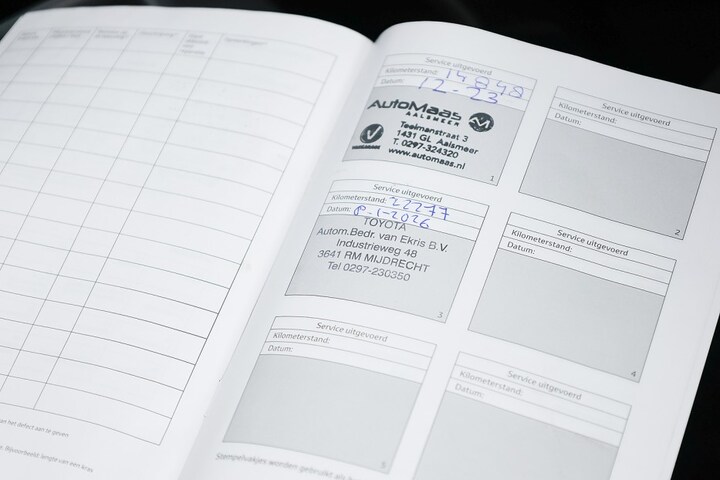 Service uitgevoerd
Kilometerstand: 14848
Datum: 12-23
AutoMaas
AALSMEER
Teelmanstraat 3
1431 GL Aalsmeer
T. 0297-324320
www.automaas.nl
1
Service uitgevoerd
Kilometerstand:
Datum:
2
Service uitgevoerd
Kilometerstand: 22277
Datum: 8-1-2026
TOYOTA
Autom.Bedr. van Ekris B.V.
Industrieweg 48
3641 RM MIJDRECHT
Tel 0297-230350
3
Service uitgevoerd
Kilometerstand:
Datum:
4
Service uitgevoerd
Kilometerstand:
Datum:
5
Service uitgevoerd
Kilometerstand:
Datum:
Stempelvakjes worden gebruikt als
an het defect aan te geven
Bijvoorbeeld lengte van een kras